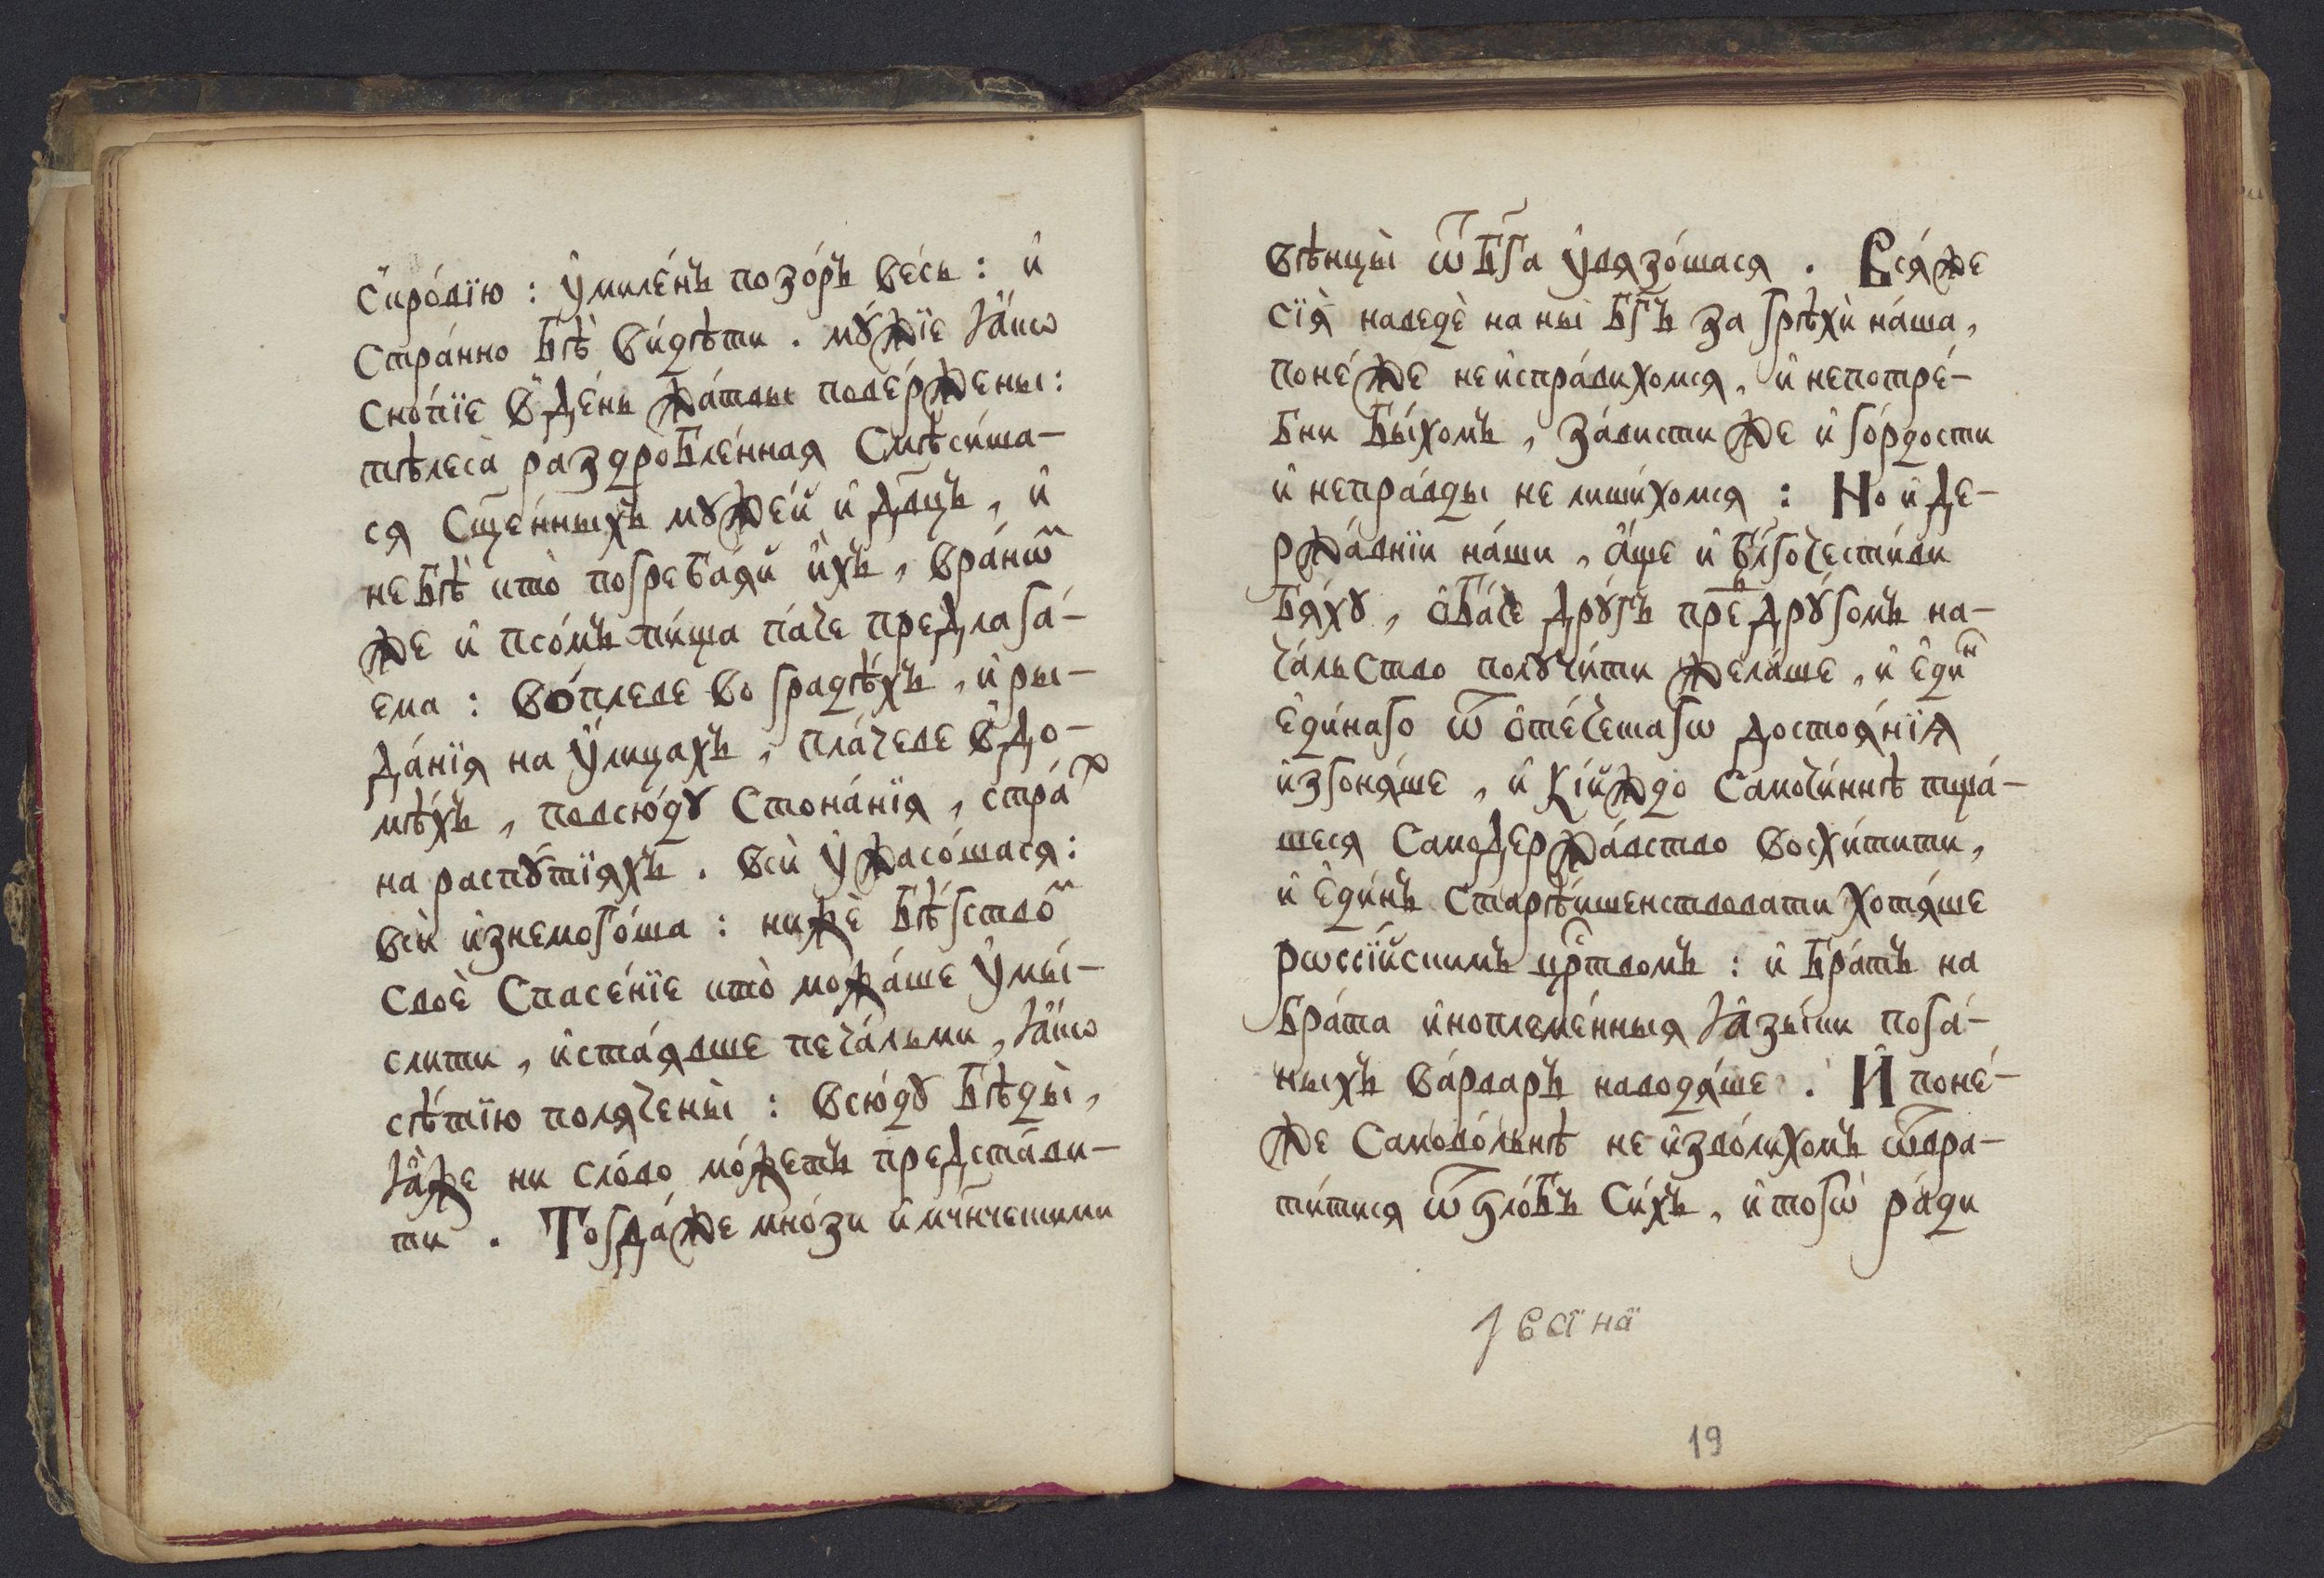 свиро́вїю : ᲂу҆миле́нъ позо́ръ ве́сь : и҆
стра́нно бѣ̀ ви́дѣти . мꙋ́жїе ꙗ҆́кѡ
сно́пїе в̾ де́нь жа́твы пове́ржены :
тѣлеса̀ раздробле́нная смѣси́ша-
ся сщ҃е́нныхъ мꙋже́й и҆ дв҃цъ , и҆
не бѣ̀ кто̀ погреба́яй и҆̀хъ , вра́нѡⷨ
же и҆ псо́мъ пи́ща па́че предлага́-
ема : во́плеве во градѣ́хъ , и҆ ры-
да́нїя на ᲂу҆́лицахъ , пла́чеве в̾ до-
мѣ́хъ , повсю́дꙋ стона́нїя , стра́ⷯ
на распꙋ́тїяхъ . всѝ ᲂу҆жасо́шася :
всѝ и҆знемого́ша : нижѐ бѣ́гствоⷨ
своѐ спасе́нїе кто̀ можа́ше ᲂу҆мы́-
слити , и҆ста́явше печа́льми , ꙗ҆́кѡ
сѣ́тїю повя́чены̀ : всю́дꙋ бѣ́ды̀ ,
ꙗ҆̀же ни сло́во мо́жетъ предста́ви-
ти . Тогда́же мно́зи и҆ мч҃нчешкими
вѣнцы̀ ѿ бг҃а ᲂу҆вязо́шася . Вся́же
сїя̀ наведѐ на ны̀ бг҃ъ за грѣхѝ на́ша ,
поне́же не и҆спра́вихомся , и҆ непотре́-
бни бы́хомъ , за́висти же и҆ го́рдости
и҆ непра́вды не лиши́хомся : Но и҆ де-
ржа́внїи на́ши , а҆́ще и҆ бл҃гочести́ви
бя́хꙋ , ѻ҆ба́че дрꙋ́гъ преⷣ дрꙋ́гомъ на-
ча́льство полꙋчи́ти жела́ше , и҆ є҆ди́ⷩ
є҆ди́наго ѿ ѻ҆те́чешагѡ достоя́нїя
и҆згоня́ше , и҆ кі́йждо самочи́ннѣ тща́-
шеся самодержа́вство восхи́тити ,
и҆ є҆ди́нъ старѣ́йшенствовати хотя́ше
рѡссі́йскимъ црⷭ҇твомъ : и҆ бра́тъ на
бра́та и҆ноплеме́нныя ꙗ҆зы́ки пога́-
ныхъ ва́рваръ наводя́ше . И҆ поне́-
же самово́льнѣ не и҆зво́лихомъ ѿвра-
ти́тися ѿ ѕло́бъ си́хъ , и҆ тогѡ̀ ра́ди
19